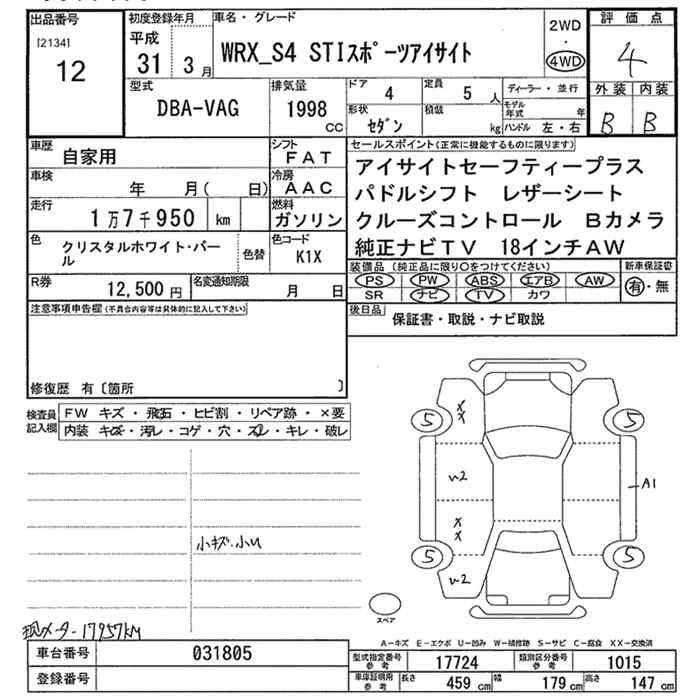 出品番号 初度登録年月 車名・グレード 2WD 評価点
[2134] 平成 WRX_S4 STIスポーツアイサイト ・ 4
12 31 3月 4WD
型式 排気量 ドア 定員 ディーラー・並行 外装 内装
DBA-VAG 1998 4 5人 モデル年式 年 B B
cc 形状 セダン 積載 kg ハンドル 左・右
車歴 自家用 シフト FAT セールスポイント(正常に機能するものに限ります)
車検 年 月( 日) 冷房 AAC アイサイトセーフティープラス
走行 1万7千950 km 燃料 ガソリン パドルシフト レザーシート
色 クリスタルホワイト・パール 色替 色コード K1X クルーズコントロール Bカメラ
純正ナビTV 18インチAW
R券 12,500円 名変通知期限 月 日 装備品(純正品に限り○をつけてください) 新車保証書
PS PW ABS エアB AW 有・無
SR ナビ TV カワ
注意事項申告欄(不具合内容等は具体的に記入して下さい) 後日品 保証書・取説・ナビ取説
修復歴 有〔箇所 〕
検査員記入欄 FW キズ・飛石・ヒビ割・リペア跡・×要
内装 キズ・汚レ・コゲ・穴・スレ・キレ・破レ
5 5
W2 A1
小キズ.小U
5 5
W2
スペア
現メーター17957km
A－キズ E－エクボ U－凹み W－補修跡 S－サビ C－腐食 XX－交換済
車台番号 031805 型式指定番号 参考 17724 類別区分番号 参考 1015
登録番号 車庫証明用 参考 長さ 459cm 幅 179cm 高さ 147cm